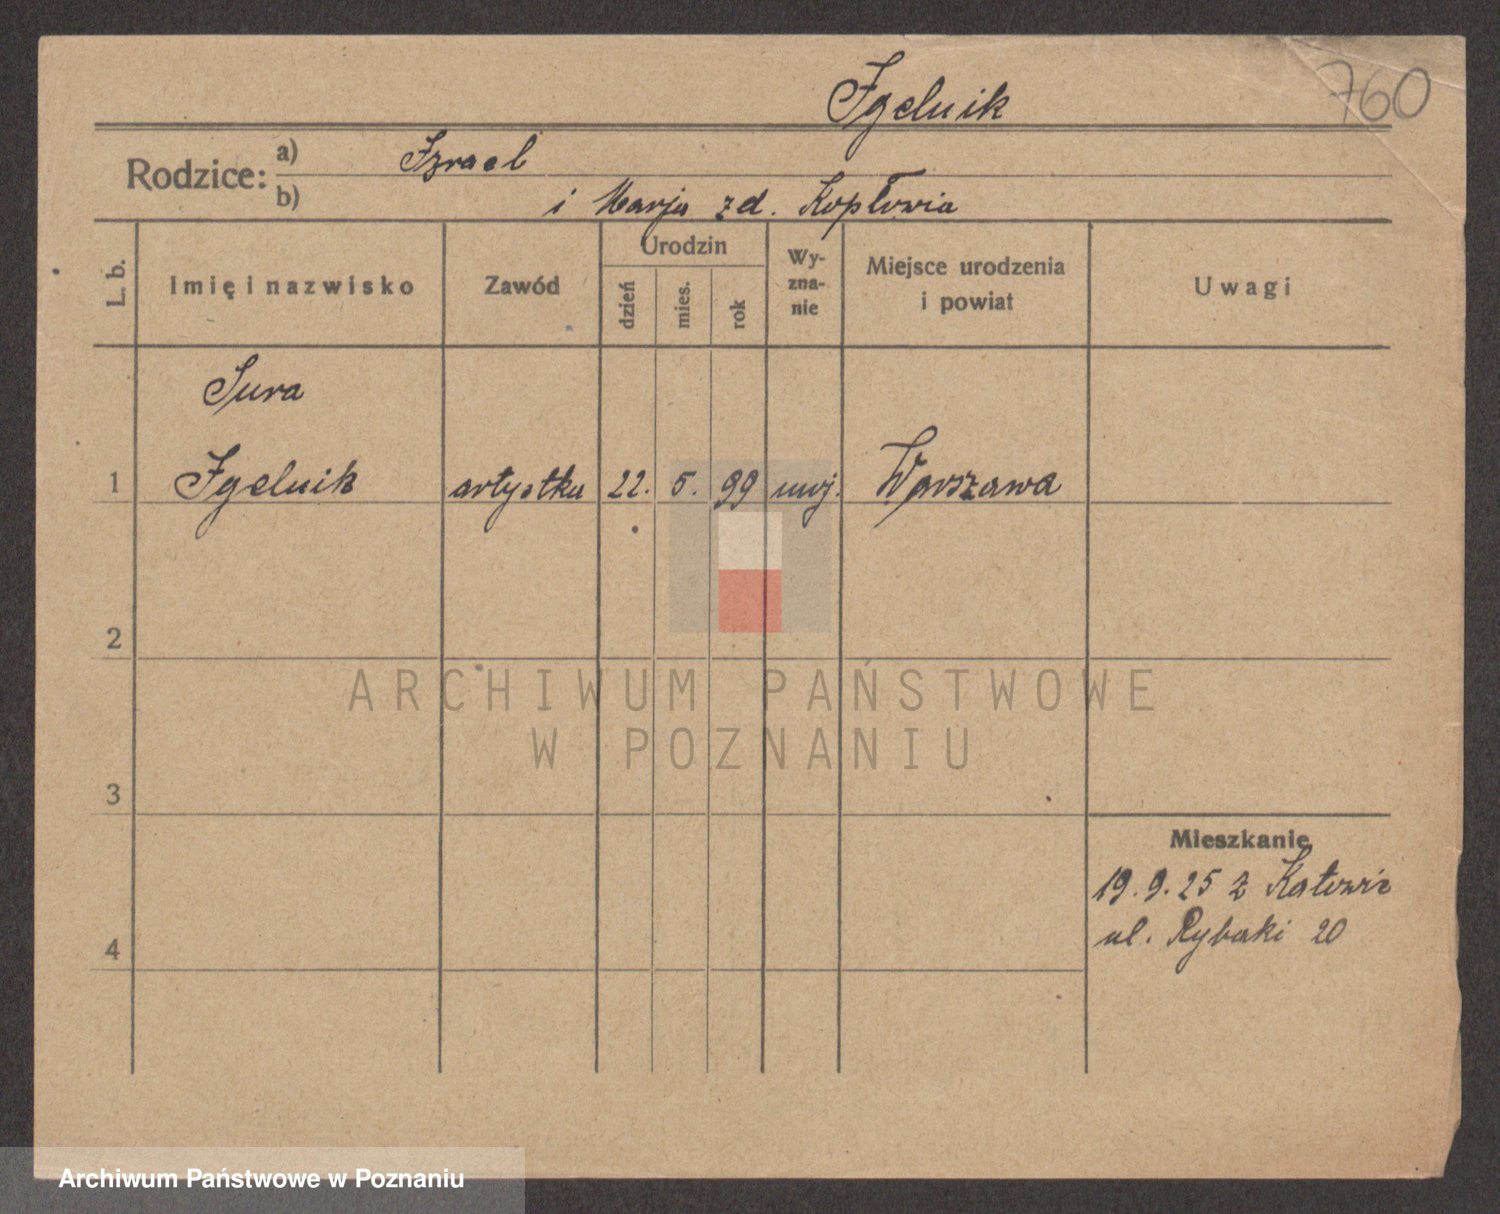 Igelnik
760
Rodzice:
a) Izrael
b) i Marja zd.
L. b.
Imię i nazwisko
Zawód
Urodzin
dzień
mies.
rok
Wy-
zna-
nie
Miejsce urodzenia
i powiat
Uwagi
Sura
1 Igelnik artystka 22. 5. 99 moj. Warszawa
2
3
4
Mieszkanie
19.9.25 z Katowic
ul. Rybaki 20
ARCHIWUM PAŃSTWOWE
W POZNANIU
Archiwum Państwowe w Poznaniu